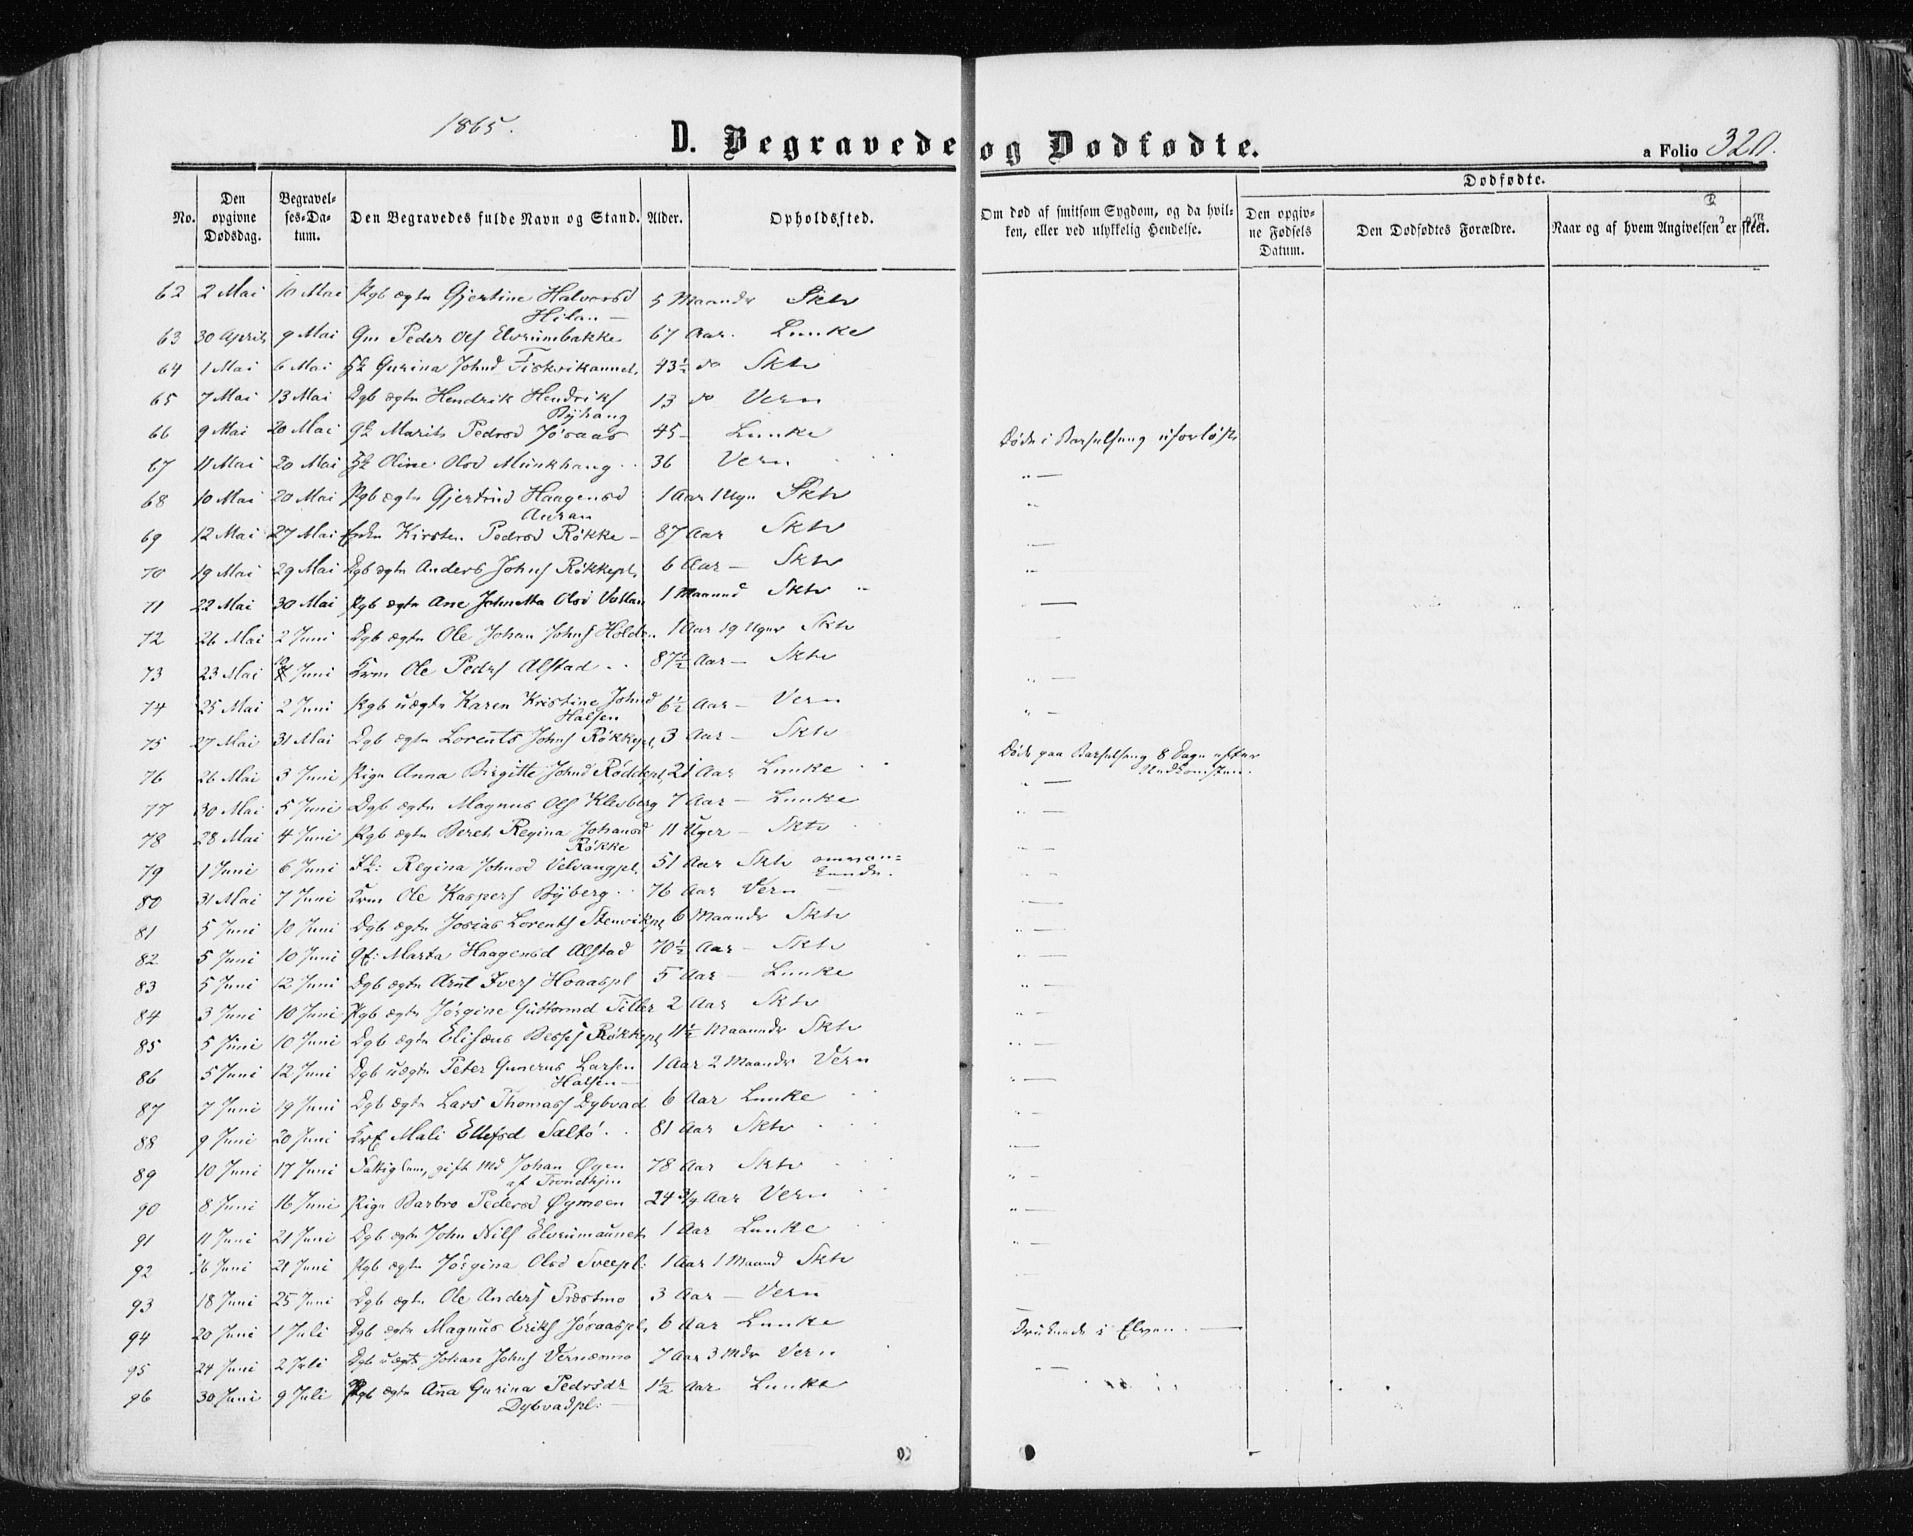 1865.
D. Begravede og Dødfødte.
a Folio 320.
No.
Den opgivne Dødsdag.
Begravelses-Datum.
Den Begravedes fulde Navn og Stand.
Alder.
Opholdssted.
Om død af smitsom Sygdom, og da hvilken, eller ved ulykkelig Hendelse.
Dødfødte.
Den opgivne Fødsels Datum.
Den Dødfødtes Forældre.
Naar og af hvem Angivelsen er skeet.
62 2 Mai 10 Mai Pgb ægte Gjertine Halvorsd 5 Maander Sktv
Hilan —
63 30 April 9 Mai Gm Peder Ols Elvrumbakke 67 Aar. Lunke
64 1 Mai 6 Mai Gurina Johnsd Fiskvikaunet 43½ do Sktv
65 7 Mai 13 Mai Dgb ægte Hendrik Hendriks 13 do Vern
Byhaug
66 9 Mai 20 Mai Gk Marit Pedrsd Jøsaas 45 - Lunke Døde i Barselseng uforløst
67 11 Mai 20 Mai Oline Olsd Munkhaug 36 Vern
68 10 Mai 20 Mai Pgb ægte Gjertrud Haagensd 1 Aar 1 Uge Sktv
Auran
69 12 Mai 27 Mai Kirsten Pedrsd Røkke - 87 Aar Sktv
70 19 Mai 29 Mai Dgb ægte Anders Johns Røkkepl. 6 Aar — Sktv
71 22 Mai 30 Mai Pgb ægte Ane Johnetta Olsd Vollan 1 Maaned Sktv
72 26 Mai 2 Juni Dgb ægte Ole Johan Johns Holden 1 Aar 19 Uger Sktv
73 23 Mai Juni Krm Ole Pedrs Alstad 87½ Aar — Sktv
74 25 Mai 2 Juni Pgb uægte Karen Kristine Johnsd 6½ Aar — Vern
Halsen
75 27 Mai 31 Mai Dgb ægte Lorents Johns Røkkepl. 3 Aar — Sktv
76 26 Mai 3 Juni Pige Anna Birgitte Johnsd 21 Aar Lunke Døde paa Barselseng 8 Dage efter
Nedkomsten.
77 30 Mai 5 Juni Dgb ægte Magnus Ols Klevberg 7 Aar — Lunke
78 28 Mai 4 Juni Pgb ægte Beret Regina Johansd 11 Uger — Sktv
Røkke
79 1 Juni 6 Juni Regina Johnsd Velvangpl. 51 Aar Sktv
80 31 Mai 7 Juni Krm Ole Kaspers Byberg 76 Aar Vern —
81 5 Juni 10 Juni Dgb ægte Josias Lorents Stenvikpl 6 Maander Sktv
82 5 Juni 10 Juni Marta Haagensd Alstad 70½ Aar — Sktv
83 5 Juni 12 Juni Dgb ægte Arnt Ivers Hoaaspl 5 Aar — Lunke
84 3 Juni 10 Juni Pgb ægte Jørgine Guttormsd Tiller 2 Aar Sktv
85 5 Juni 10 Juni Dgb ægte Elisæus Røkkepl 11½ Maander Sktv
86 5 Juni 12 Juni Dgb uægte Peter Gunerus Larsen 1 Aar 2 Maander Vern
Halsen —
87 7 Juni 19 Juni Dgb ægte Lars Thomass Dybvad 6 Aar Lunke
88 9 Juni 20 Juni Mali Ellefsd Saltø 81 Aar Sktv
89 10 Juni 17 Juni gift Md Johan Øyen 78 Aar Sktv
af Trondhjm
90 8 Juni 16 Juni Pige Barbro Pedersd Øymoen 24¾ Aar Vern
91 11 Juni 21 Juni Dgb ægte John Nils Elvrumaunet 1 Aar Lunke
92 16 Juni 21 Juni Pgb ægte Jørgina Olsd Sveepl: 1 Aar 1 Maaned Sktv
93 18 Juni 25 Juni Dgb ægte Ole Anders Træstmo 3 Aar — Vern
94 20 Juni 1 Juli Dgb ægte Magnus Eriks Jøsaaspl. 6 Aar Lunke Druknede i Elven. —
95 24 Juni 2 Juli Dgb uægte Johan Johns Vernæsmo 7 Aar 3 Mdr Vern
96 30 Juni 9 Juli Pgb ægte Ana Gurina Pedrsdr 1½ Aar Lunke
Dybvadpl: —